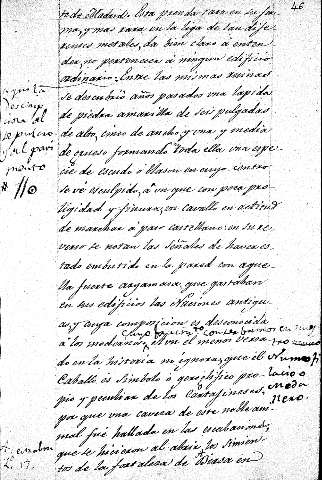 46
to de Madrid. Esta prenda rara en su for-
ma, y mas rara en la liga de tan dife-
rentes metales, da bien claro à enten-
der, no pertenece à ningun edificio
ordinario. Entre las mismas ruinas
se descubrio años pasados una lapida
de piedra amarilla de seis pulgadas
de alto, cinco de ancho, y una y media
de grueso formando toda ella una espe-
cie de escudo ò blason en cuyo centro
se vé esculpido, à un que con poca pro-
ligidad y finura, un cavallo en actitud
de marchar à paso castellano: en su re-
verso se notan las señales de haver es-
tado embutido en la pared con aque-
lla fuerte argamasa que gastaban
en sus edificios las Naciones antigu-
as, y cuya composicion es desconocida
à los modernos. el menos versa-
do en la historia no ignora, que el
Caballo es simbolo ò geroglifico pro-
pio y peculiar de los Cartagineses,
por que una caveza de este noble ani-
mal fué hallada en las escabaciones,
que se hicieron al abrir los simien-
tos de la fortaleza de Birsa en